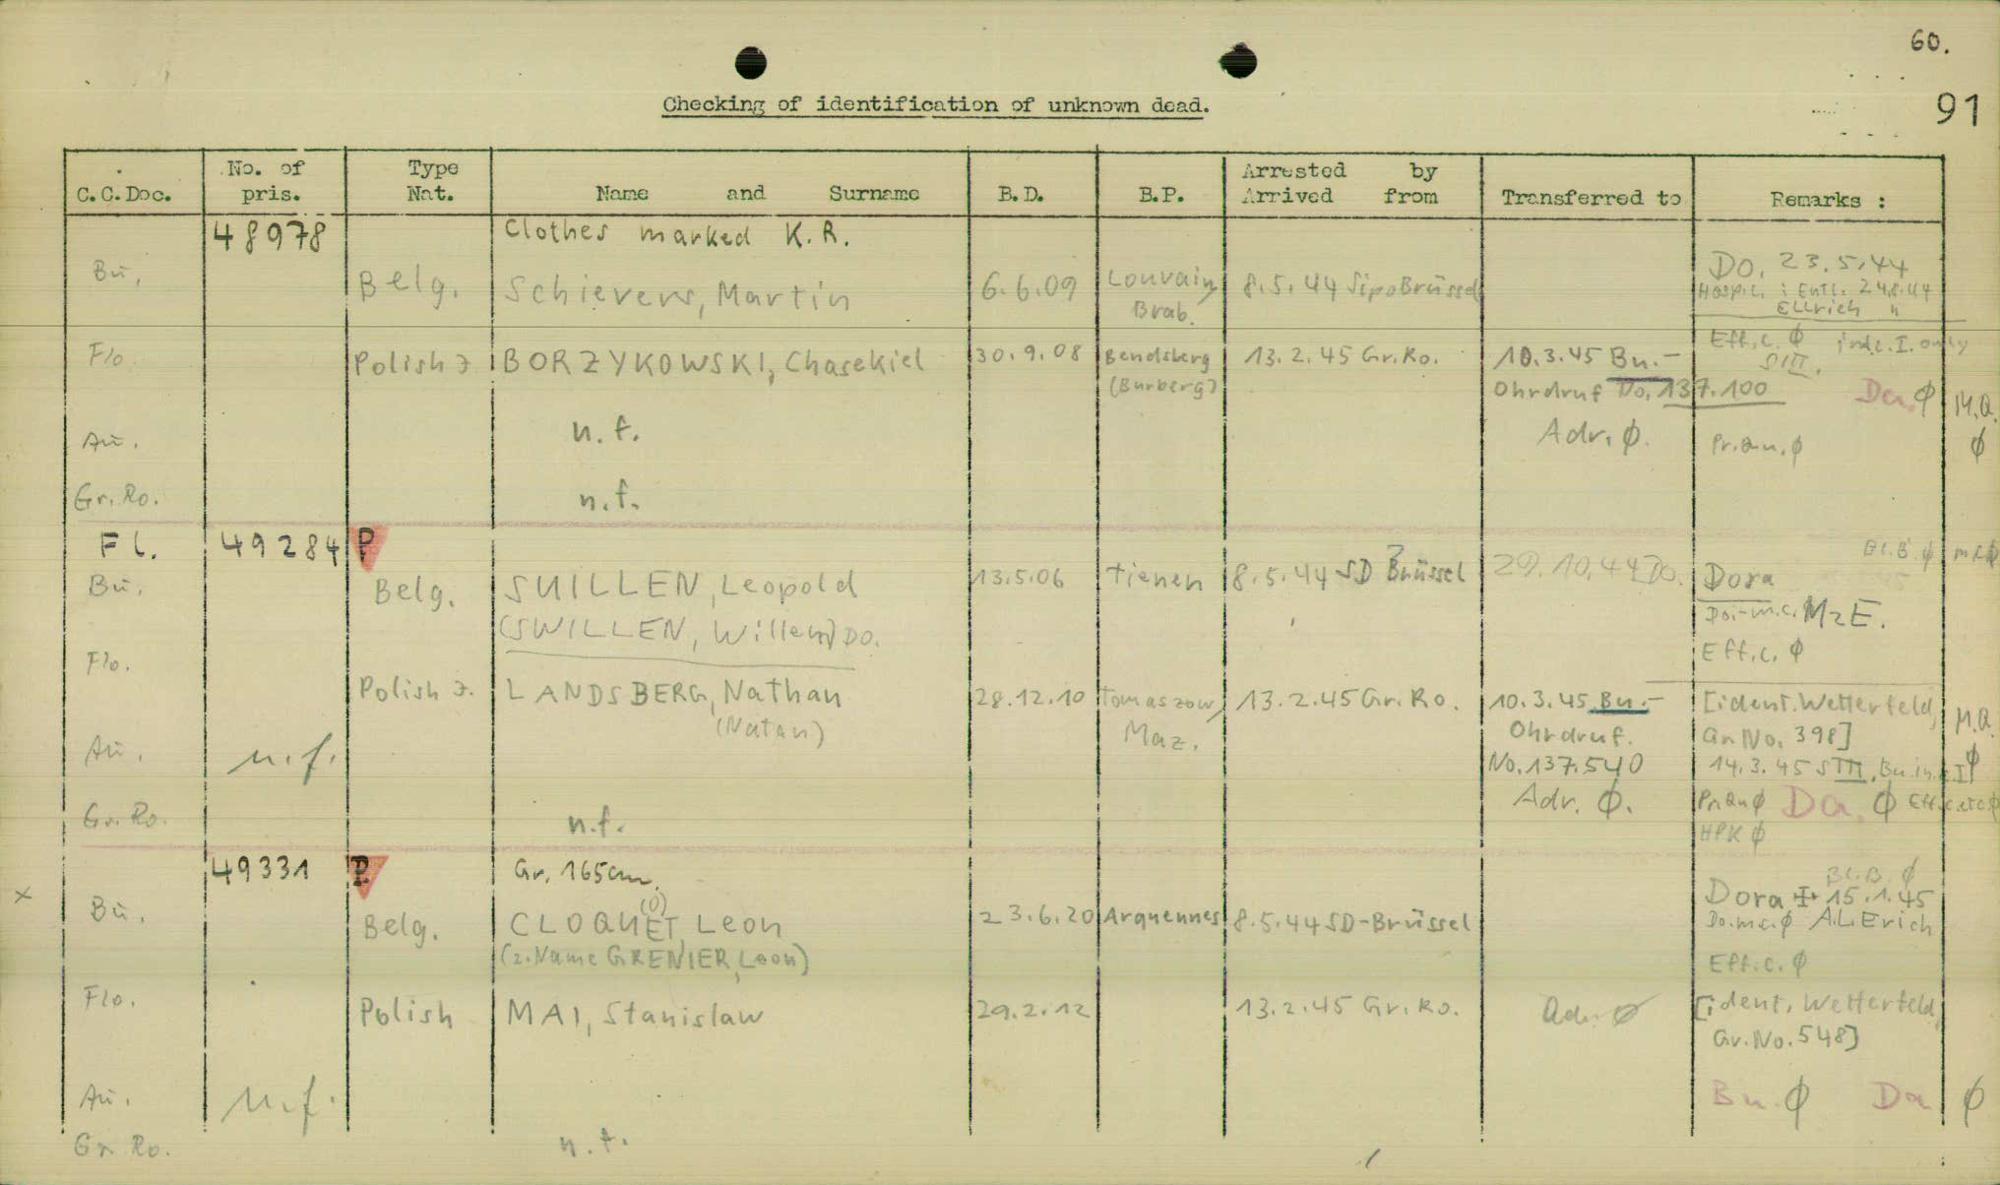 60.
91
Checking of identification of unknown dead.
C.C.Doc. No. of pris. Type Nat. Name and Surname B.D. B.P. Arrested by Arrived from Transferred to Remarks :
48978 Clothes marked K.R.
Bu. Belg. Schievers, Martin 6.6.09 Louvain, Brab. 8.5.44 Sipo Brüssel Do. 23.5.44
Hospit. : Entl. 24.8.44
Ellrich "
Eff.c. ϕ indc. I. only
SIII.
Flo. Polish J BORZYKOWSKI, Chasekiel 30.9.08 Bendsberg (Burberg) 13.2.45 Gr.Ro. 10.3.45 Bu.-
Ohrdruf Do. 137.100 Da. ϕ M.Q.
Au. n.f. Adr. ϕ. Pr.Qu. ϕ ϕ
Gr.Ro. n.f.
Fl. 49284 P Bl.B. ϕ
Bu. Belg. SUILLEN, Leopold 13.5.06 Tienen 8.5.44 SD Brüssel 29.10.44 Do. Dora
(SWILLEN, Willem) Do. m.c. MzE.
Eff.c. ϕ
Flo. Polish J. LANDSBERG, Nathan 28.12.10 Tomaszow, Maz. 13.2.45 Gr.Ro. 10.3.45 Bu.- [ident. Wetterfeld,
(Natan) Ohrdruf. Gr.No. 398] M.Q.
Au. n.f. No. 137.540 14.3.45 SIII, Bu. ϕ
Adr. ϕ. Pr.Qu ϕ Da. ϕ
Gr.Ro. n.f. HPK ϕ
49331 P Gr. 165cm. Bl.B. ϕ
x Bu. Belg. CLOQUET Leon 23.6.20 Arquennes 8.5.44 SD-Brüssel Dora + 15.1.45
(O)
(2.Name GRENIER, Leon) Do.m.c. ϕ A.L.Erich
Eff.c. ϕ
Flo. Polish MAI, Stanislaw 29.2.12 13.2.45 Gr.Ro. Adr. ϕ [ident. Wetterfeld,
Gr.No. 548]
Au. n.f. Bu. ϕ Da ϕ
Gr.Ro. n.f.